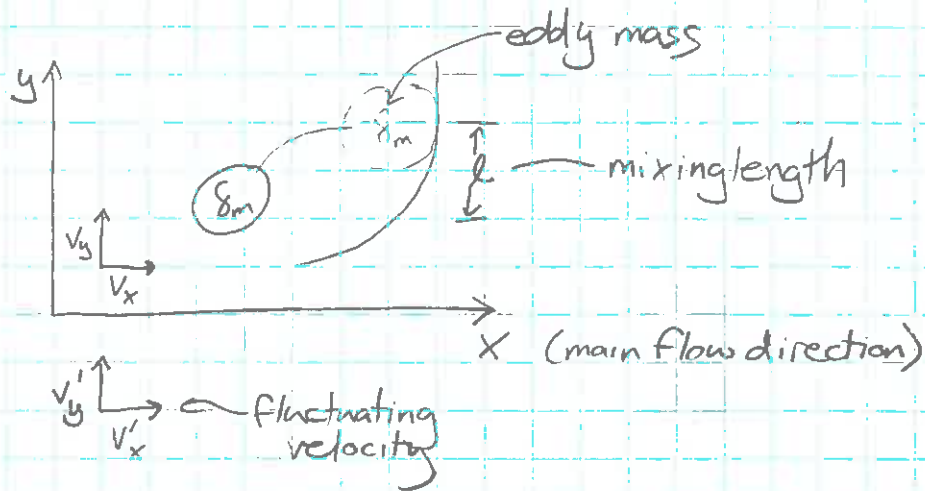 eddy mass
y
γm
l
mixing length
δm
Vy
Vx
X (main flow direction)
Vy'
Vx'
fluctuating
velocity